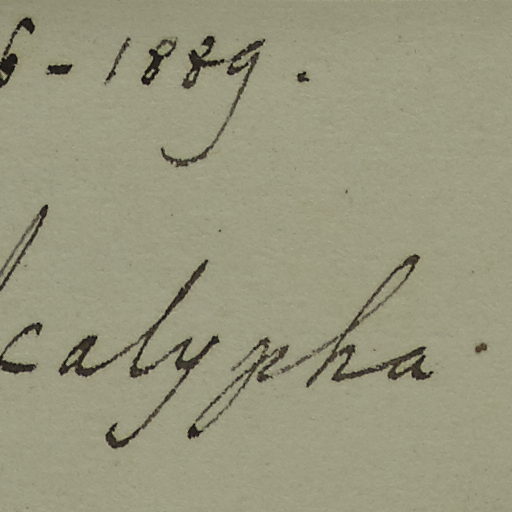 6-1889.
calypha.